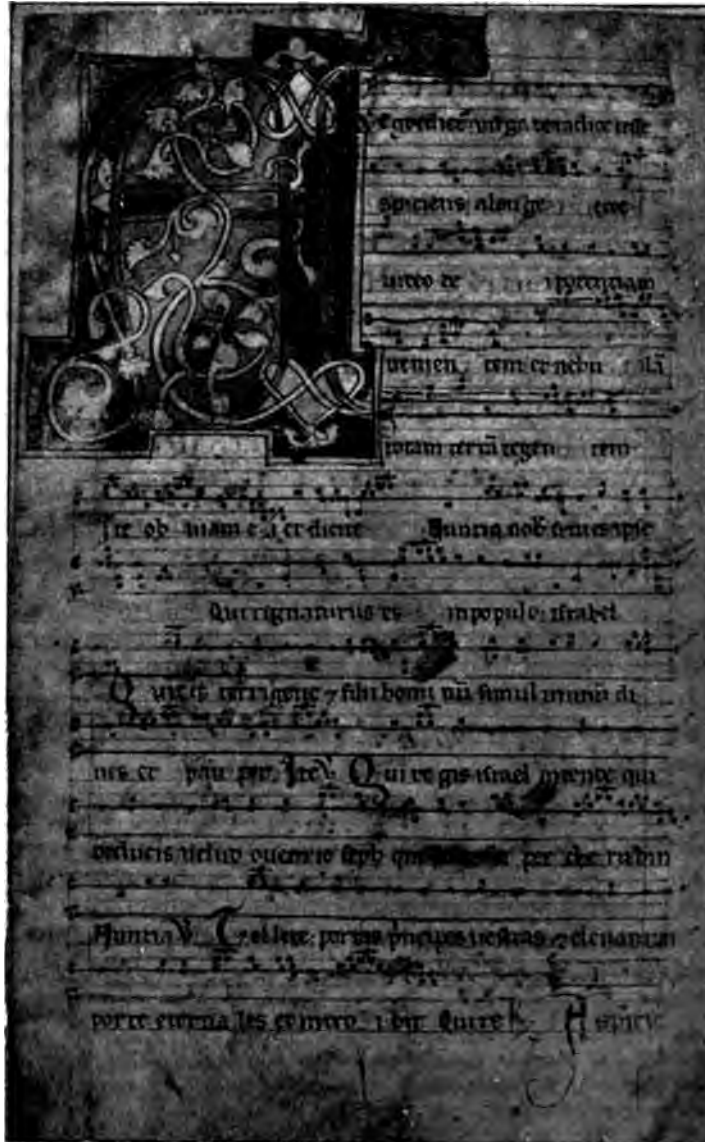 spiciens a longe ecce
uideo de i potentiam
uenien tem et nebu lā
totam terrā tegen tem
Ite ob uiam e i et dicite Nuntia nob si tu es ipse
Qui regnaturus es in populo israhel
Qui q̄ terrigene ⁊ filii homi nū simul in unū di
ues et pau per Ite V Qui re gis israel intende qui
deducis uelud ouem io seph qui per che rubin
Nuntia V Tollite portas p̄ncipes uestras ⁊ eleuamini
porte eterna les et intro i bit Qui re R Aspici